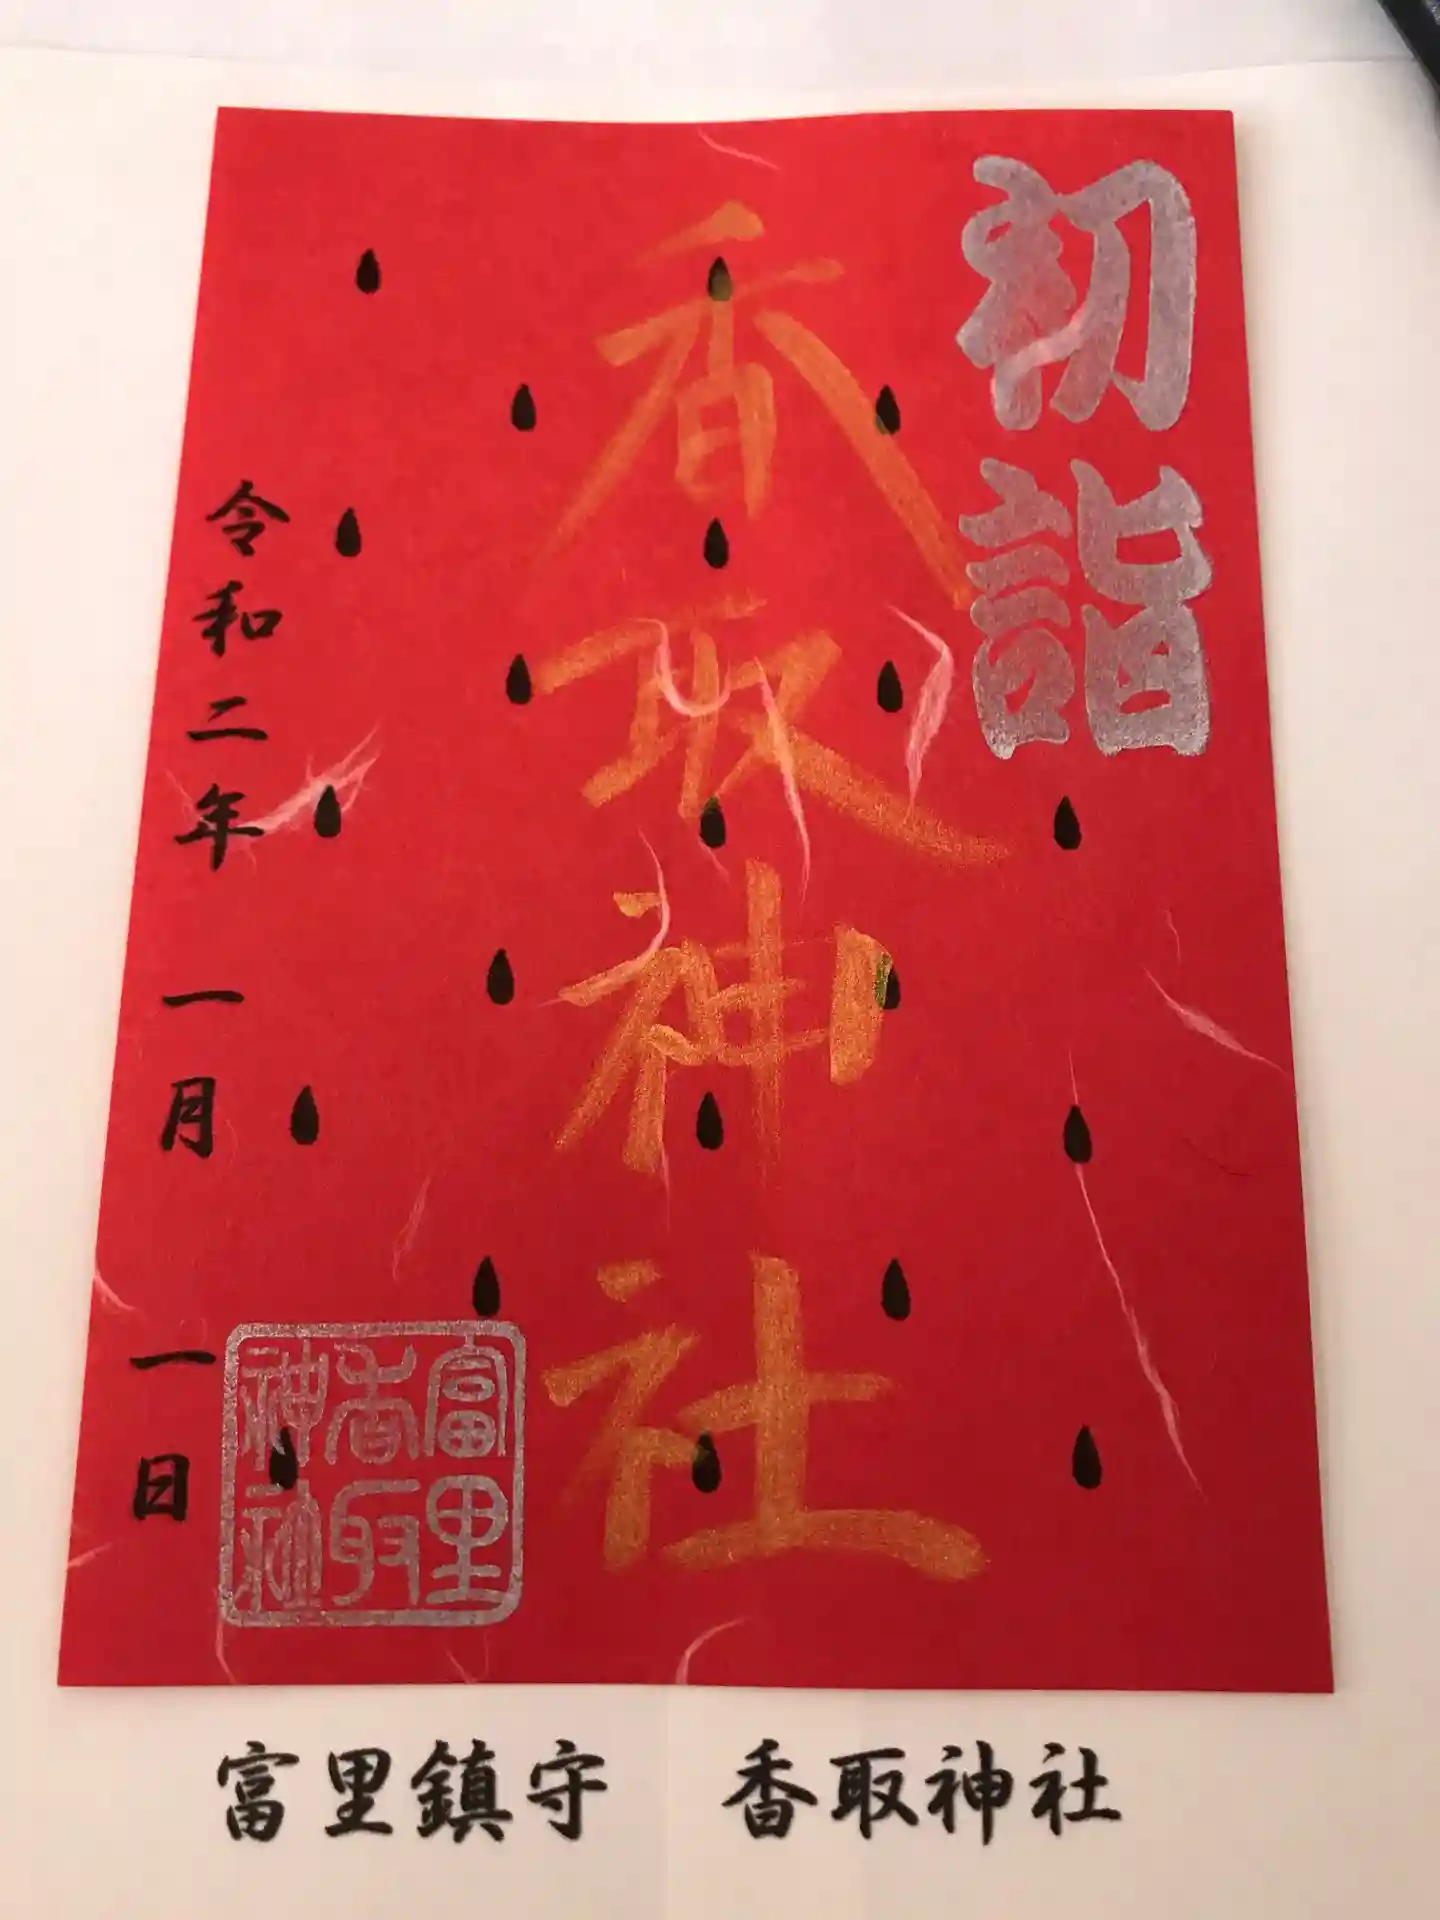 初詣
香取神社
令和二年 一月 一日
富里
香取
神社
富里鎮守 香取神社